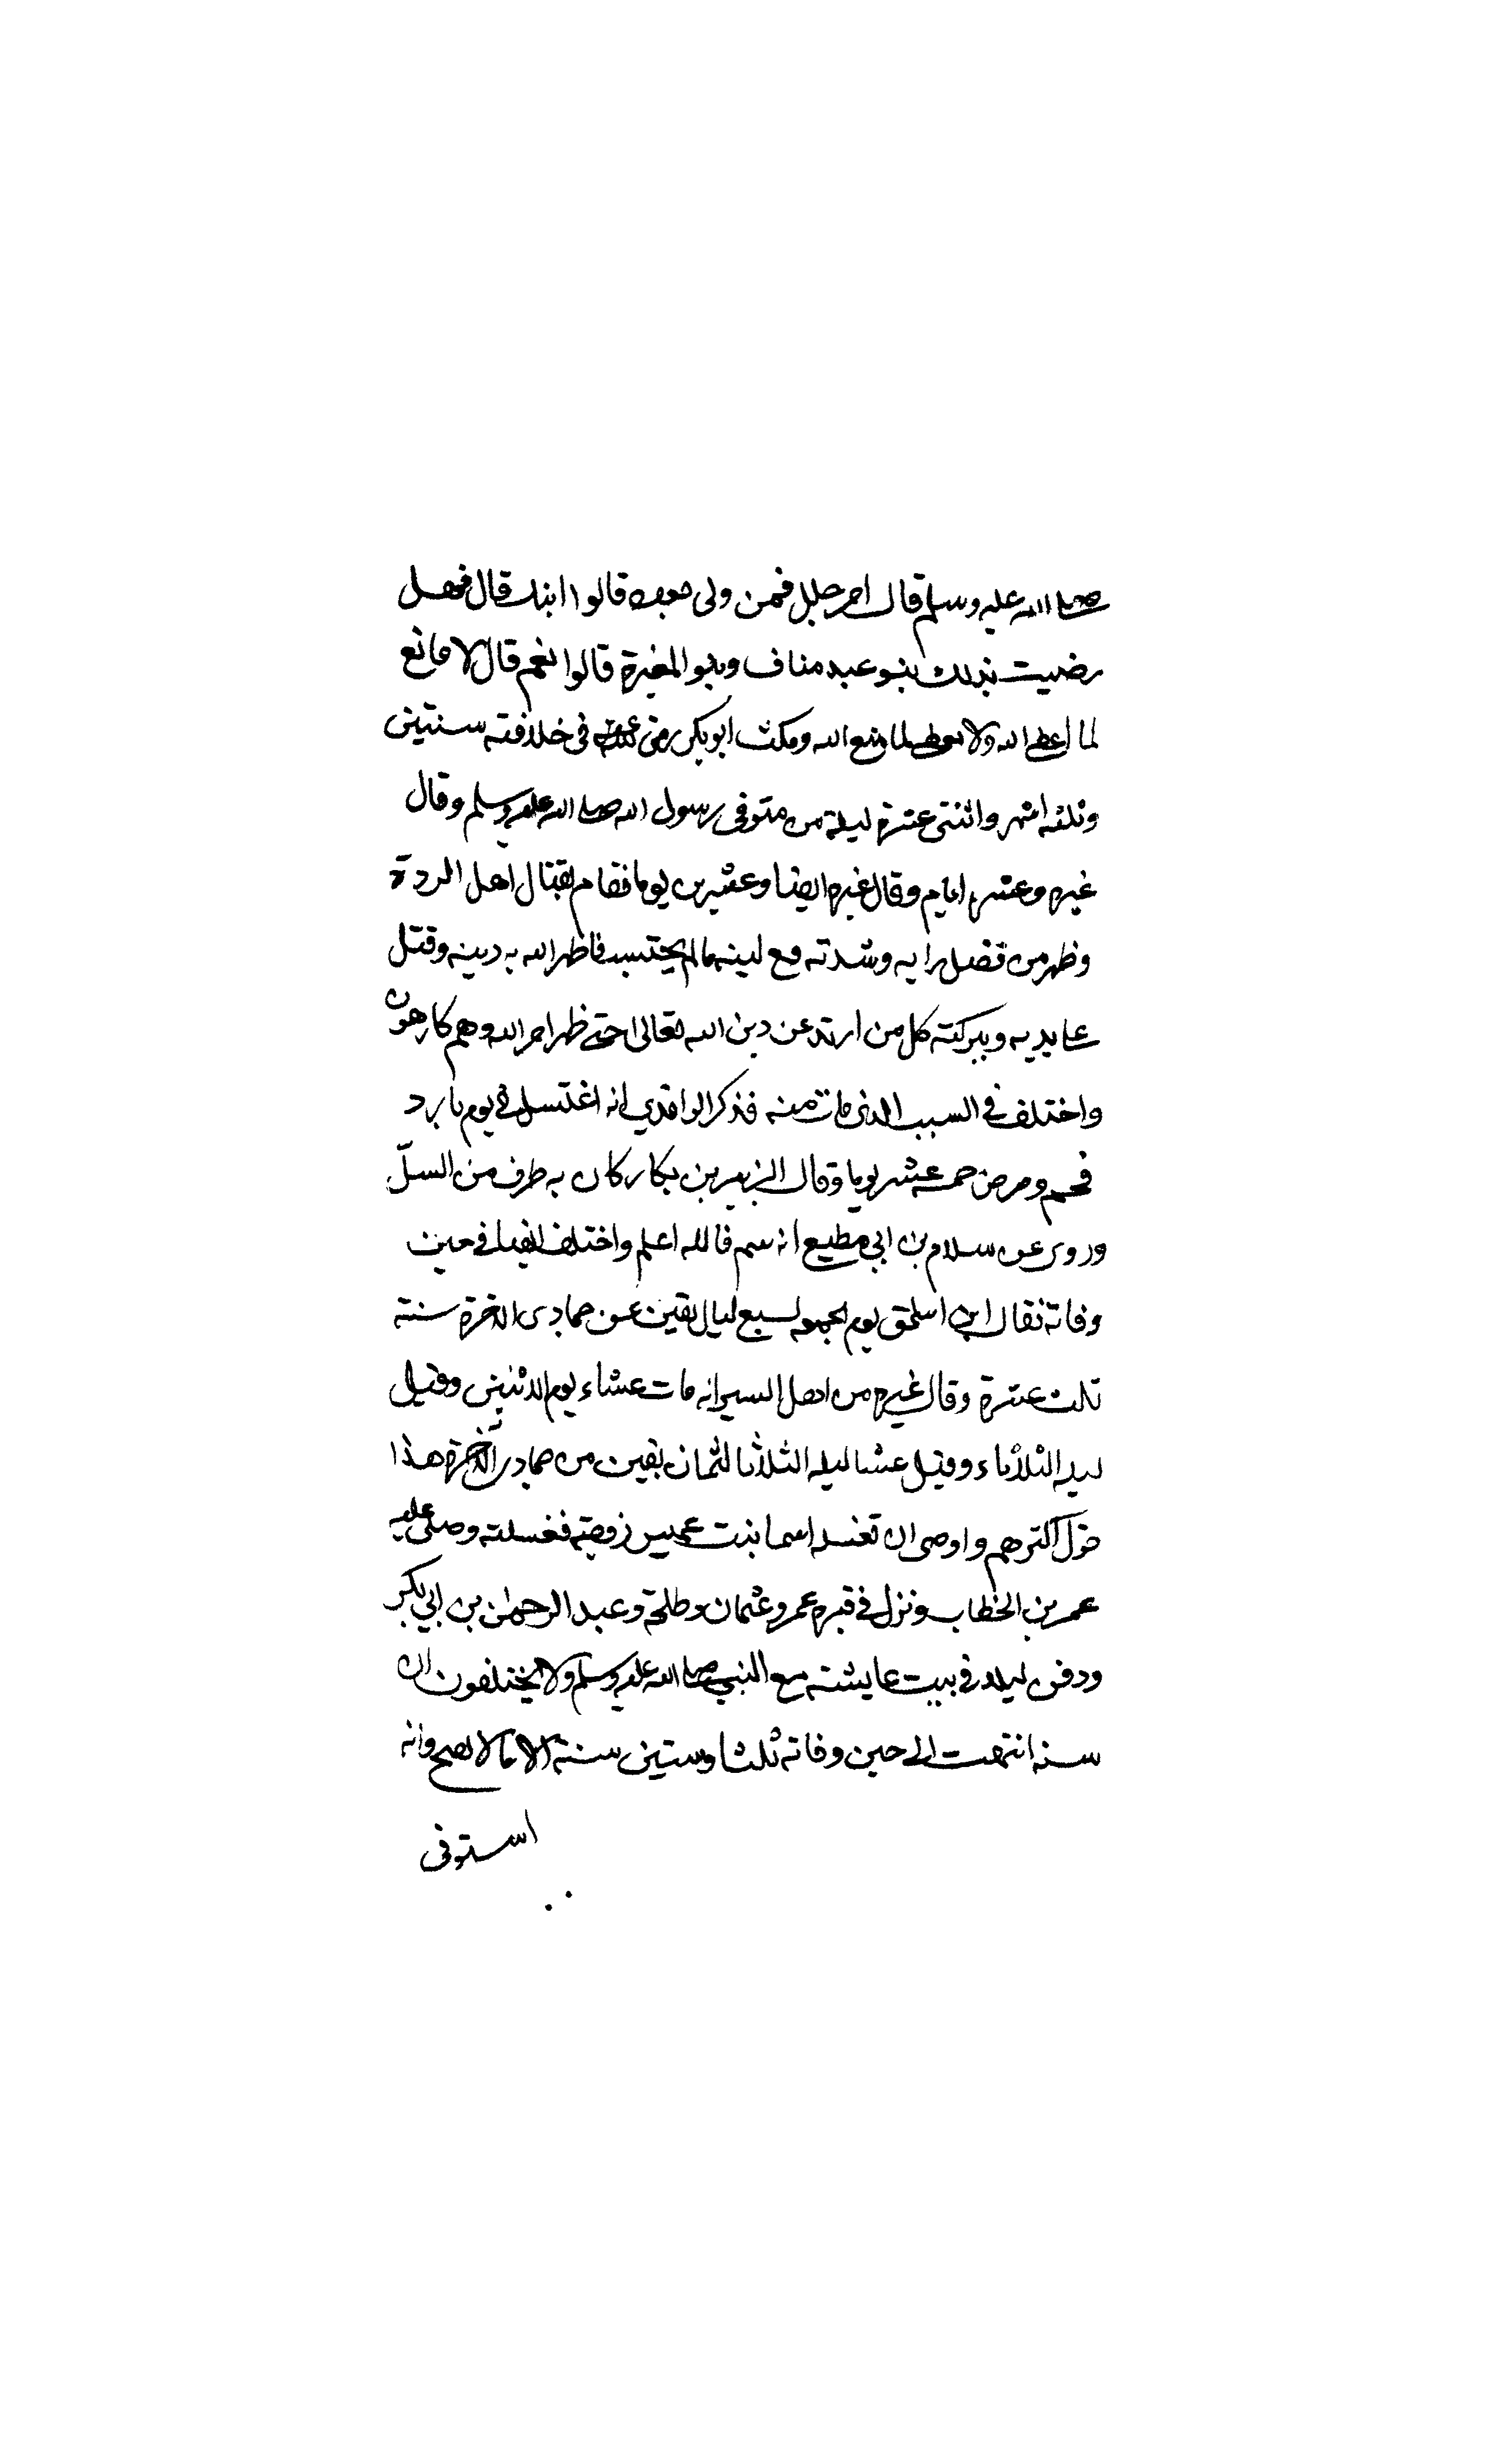 صلى الله عليه وسلم قال امر جلل فمن ولى بعده قالوا ابنك قال فهل
رضيت بذلك بنو عبد مناف وبنو المغيرة قالوا نعم قال لا مانع
لما اعطى الله ولا معطى لما منع الله ومكث ابو بكر رضى عنه فى خلافته سنتين
وثلثه اشهر واثنتى عشرة ليلة من متوفى رسول الله صلى الله عليه وسلم وقال
غيره وعشره ايام وقال غيره ايضا وعشرين يوما فقام بقتال اهل الردة
وظهر من فضل رايه وشدته مع لينه ما لم يحتسب فاظهر الله به دينه وقتل
على يديه وببركته كل من ارتد عن دين الله تعالى حتى ظهر امر الله وهم كارهون
واختلف في السبب الذى مات منه فذكر الواقدي انه اغتسل في يوم بارد
فحم ومرض خمسه عشر يوما وقال الزبير بن بكار كان به طرف من السلّ
وروى عن سلام بن ابي مطيع انه سم فالله اعلم واختلف ايضا في حين
وفاته فقال ابن اسحق يوم الجمعه لسبع ليال بقين من جمادى الاخرة سنة
ثلث عشرة وقال غيره من اهل السير انه مات عشاء يوم الاثنين وقيل
ليله الثلاثاء وقيل عشا ليله الثلاثا لثمان بقين من جمادى الاخرة هذا
قول اكثرهم واوصى ان تغسله اسما بنت عميس زوجته فغسلته وصلى عليه
عمر بن الخطاب ونزل في قبره عمر وعثمان وطلحة وعبد الرحمن بن ابي بكر
ودفن ليلا في بيت عايشة مع النبي صلى الله عليه وسلم ولا يختلفون ان
سنه انتهت الى حين وفاته ثلثا وستين سنة الا ما لا يصح وانه
استوفى